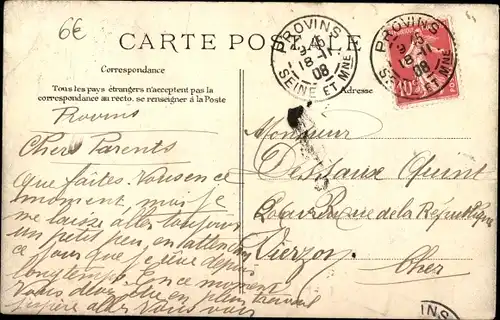 6€
CARTE POSTALE
PROVINS
18-11
08
SEINE ET MNE
PROVINS
18-11
08
ET MNE
10
Correspondance
Adresse
Tous les pays étrangers n'acceptent pas la
correspondance au recto. se renseigner à la Poste
Provins
Chers Parents
Que faites-Vous en ce
moment, moi je
me laisse aller toujours
un petit peu, en attendant
ce jour que je rêve depuis
longtemps. En ce moment
vous devez être en plein travail
aller Vous voir
Monsieur
Quint
Rue de la République
Vierzon
Cher
INS